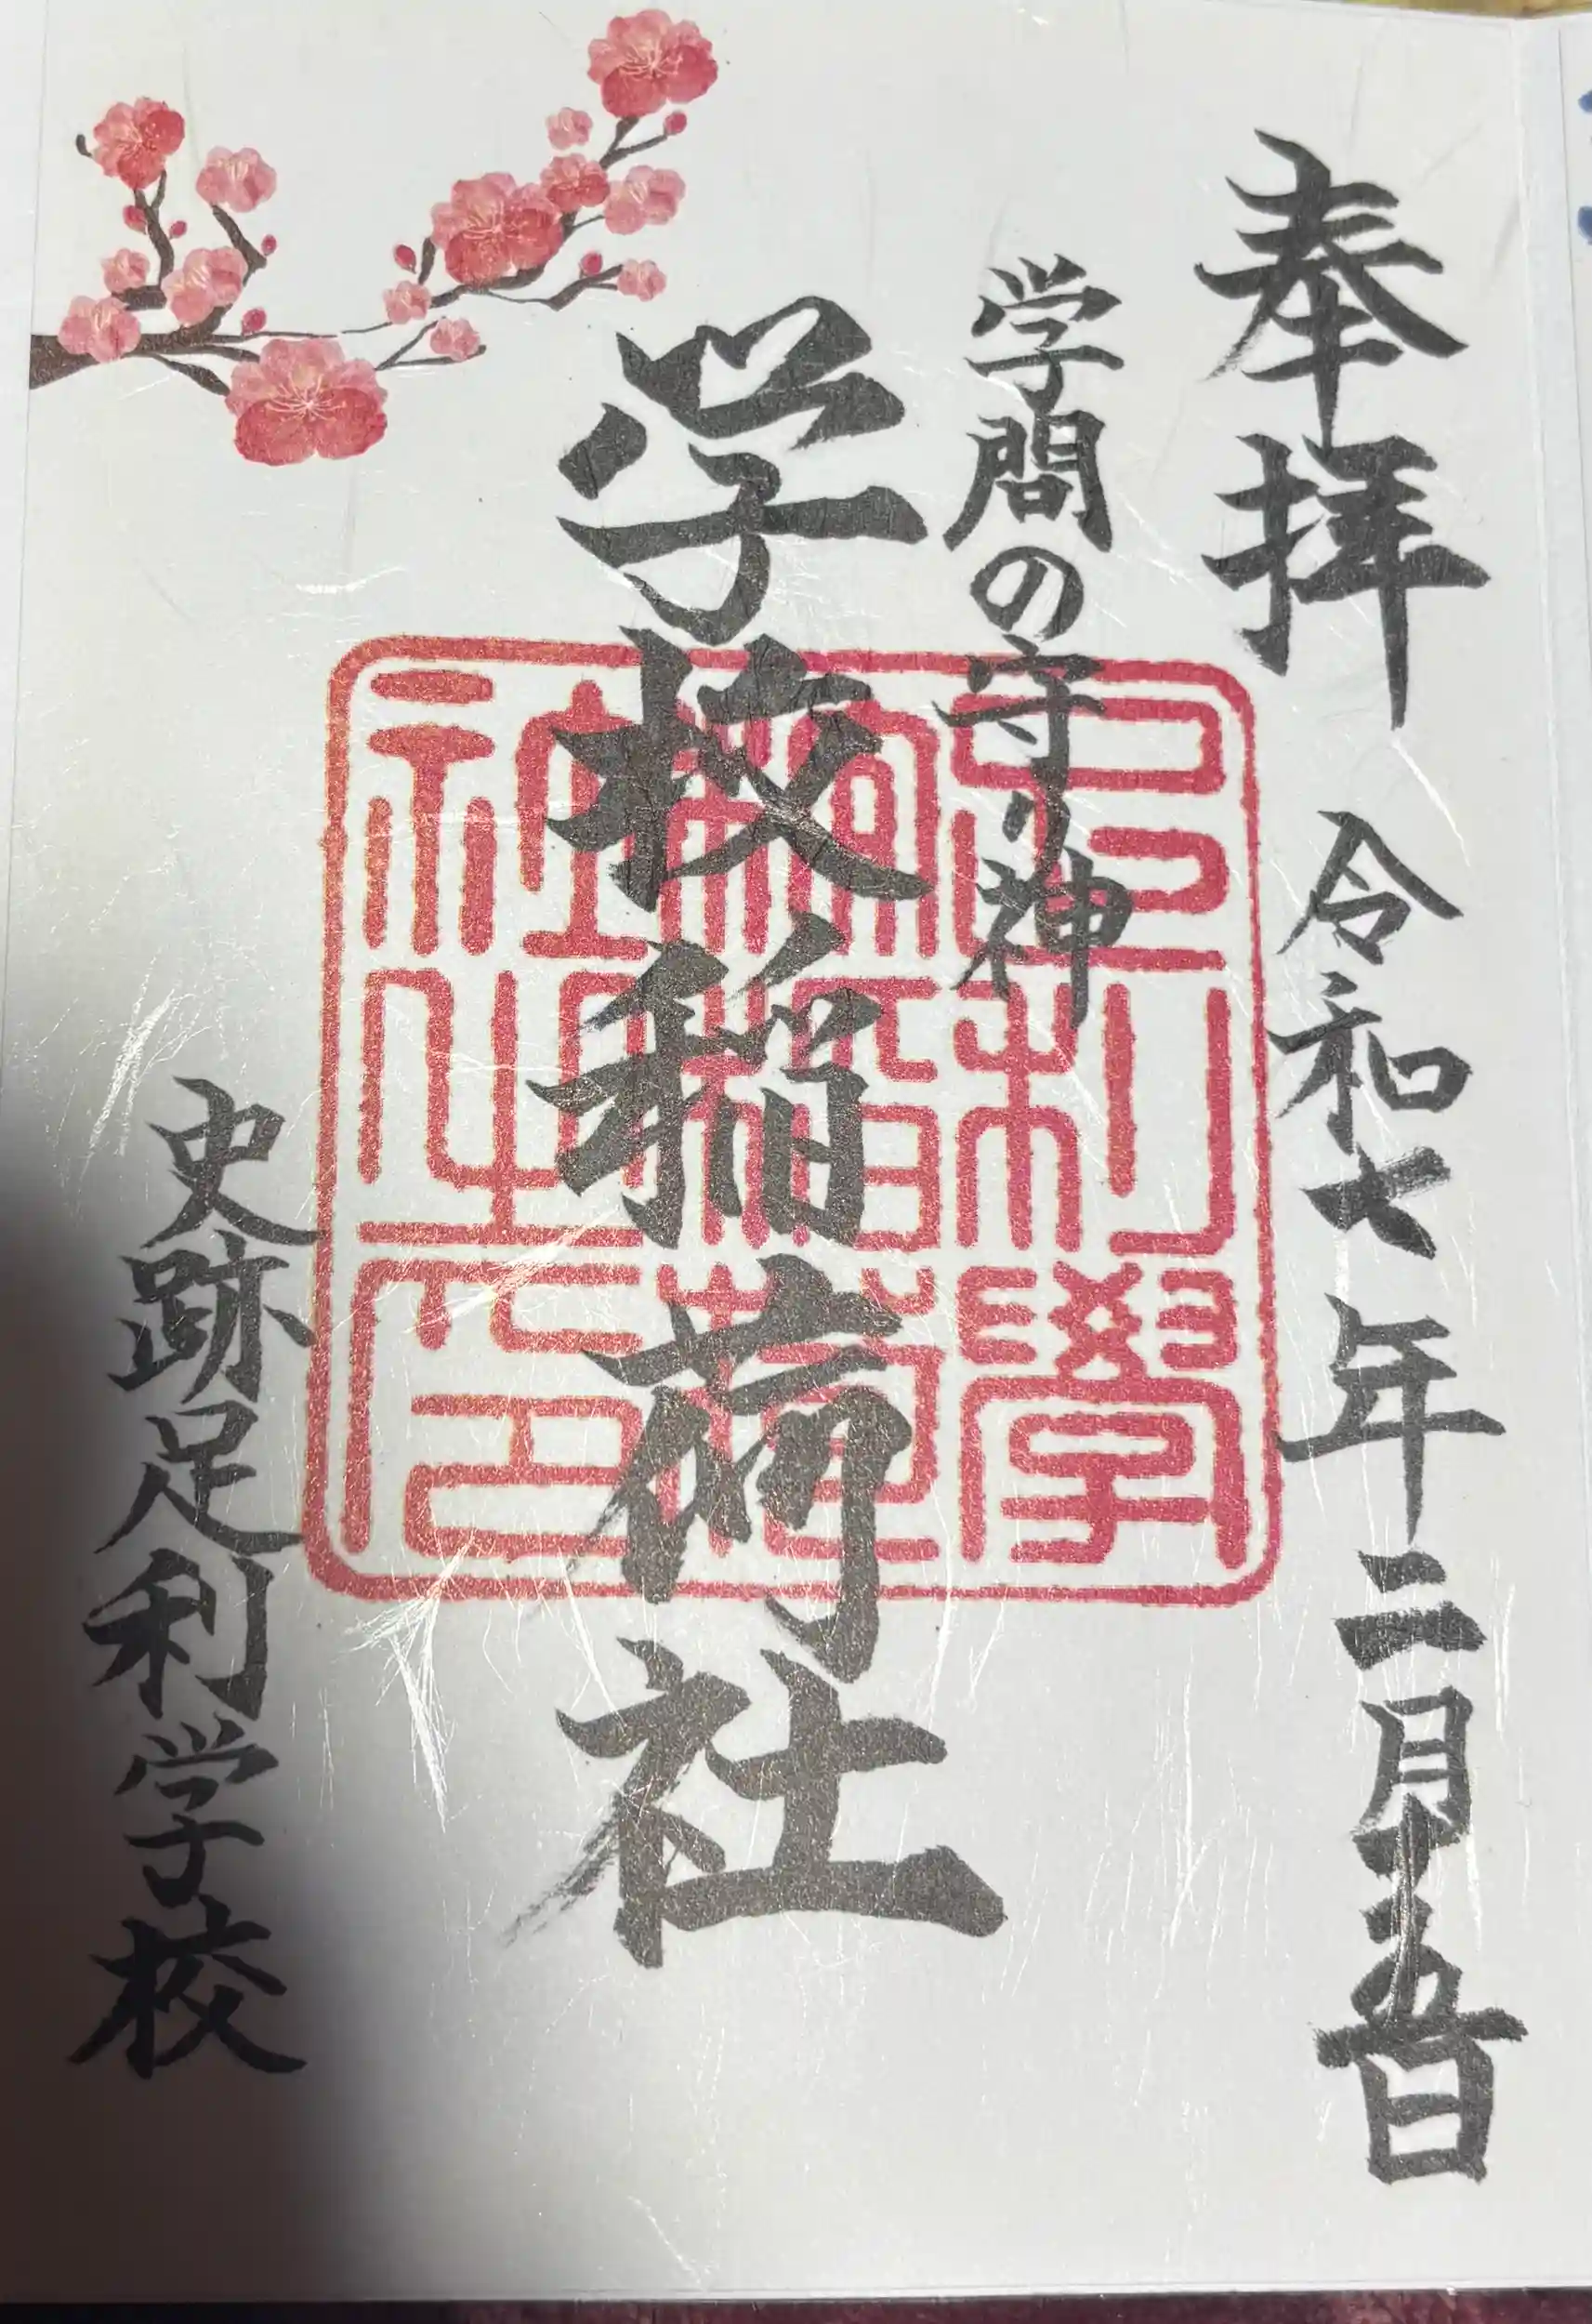 奉拝 令和七年二月十五日
学問の守り神
学校稲荷社
史跡足利学校
足利學
校稲荷
社之印